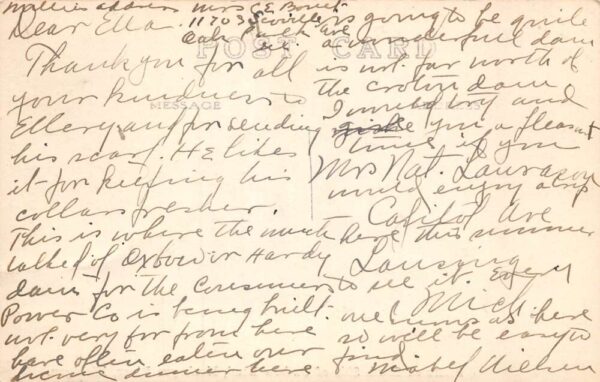 Millies address Mrs C E Bonet
11703 Seville
Oak Park Ave
Ill.
POST CARD
MESSAGE
Dear Ella.
Thank you for all
your kindness to
Ellery and for sending
his scarf. He likes
it for keeping his
collars fresher.
This is where the much
talked of Oxbow or Hardy
dam for the Consumers
Power Co is being built.
not very far from here
have often eaten our
picnic dinner here.
is going to be quite
a wonderful dam
is not far north of
the croton dam
I would try and
give you a pleasant
time if you
would enjoy a trip
here this summer
to see it. Every
one comes as here
so will be easy to
find
Mabel Nielsen
Mrs Nat. Laurason
Capitol Ave
Lansing
Mich.